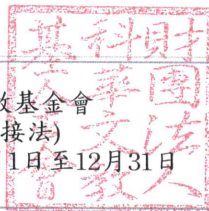 財團法人
科華文教
基金會
教基金會
接法)
1日至12月31日